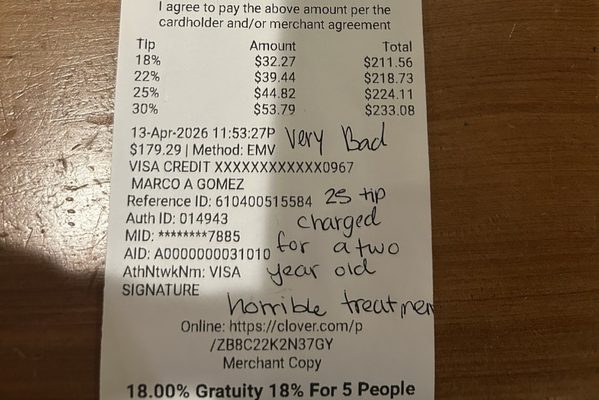 I agree to pay the above amount per the
cardholder and/or merchant agreement
Tip Amount Total
18% $32.27 $211.56
22% $39.44 $218.73
25% $44.82 $224.11
30% $53.79 $233.08
13-Apr-2026 11:53:27P Very Bad
$179.29 | Method: EMV
VISA CREDIT XXXXXXXXXXXX0967
MARCO A GOMEZ
Reference ID: 610400515584 25 tip
Auth ID: 014943 charged
MID: ********7885
AID: A0000000031010 for a two
AthNtwkNm: VISA year old
SIGNATURE
horrible treatmen
Online: https://clover.com/p
/ZB8C22K2N37GY
Merchant Copy
18.00% Gratuity 18% For 5 People